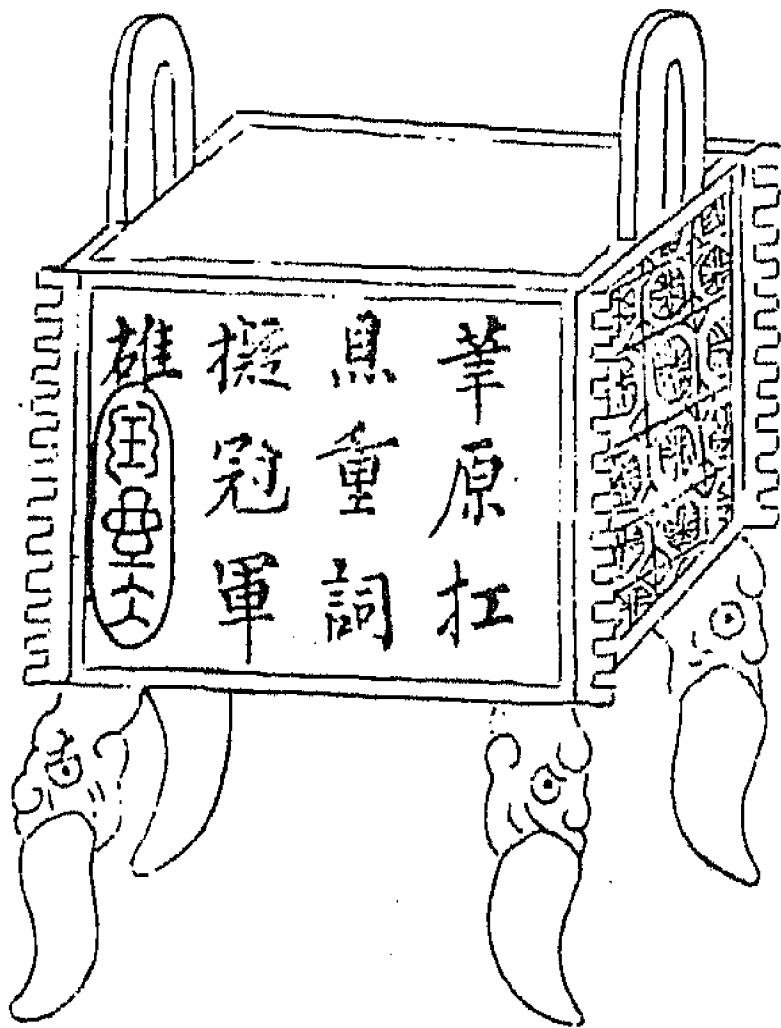 筆原扛
鼎重詞
擬冠軍
雄